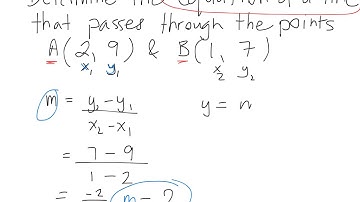 Determine the equation of a line
that passes through the points
A(2, 9) & B(1, 7)
x₁ y₁ x₂ y₂
m = y₂ - y₁ / x₂ - x₁
y = m
= 7 - 9 / 1 - 2
= -2
m = 2